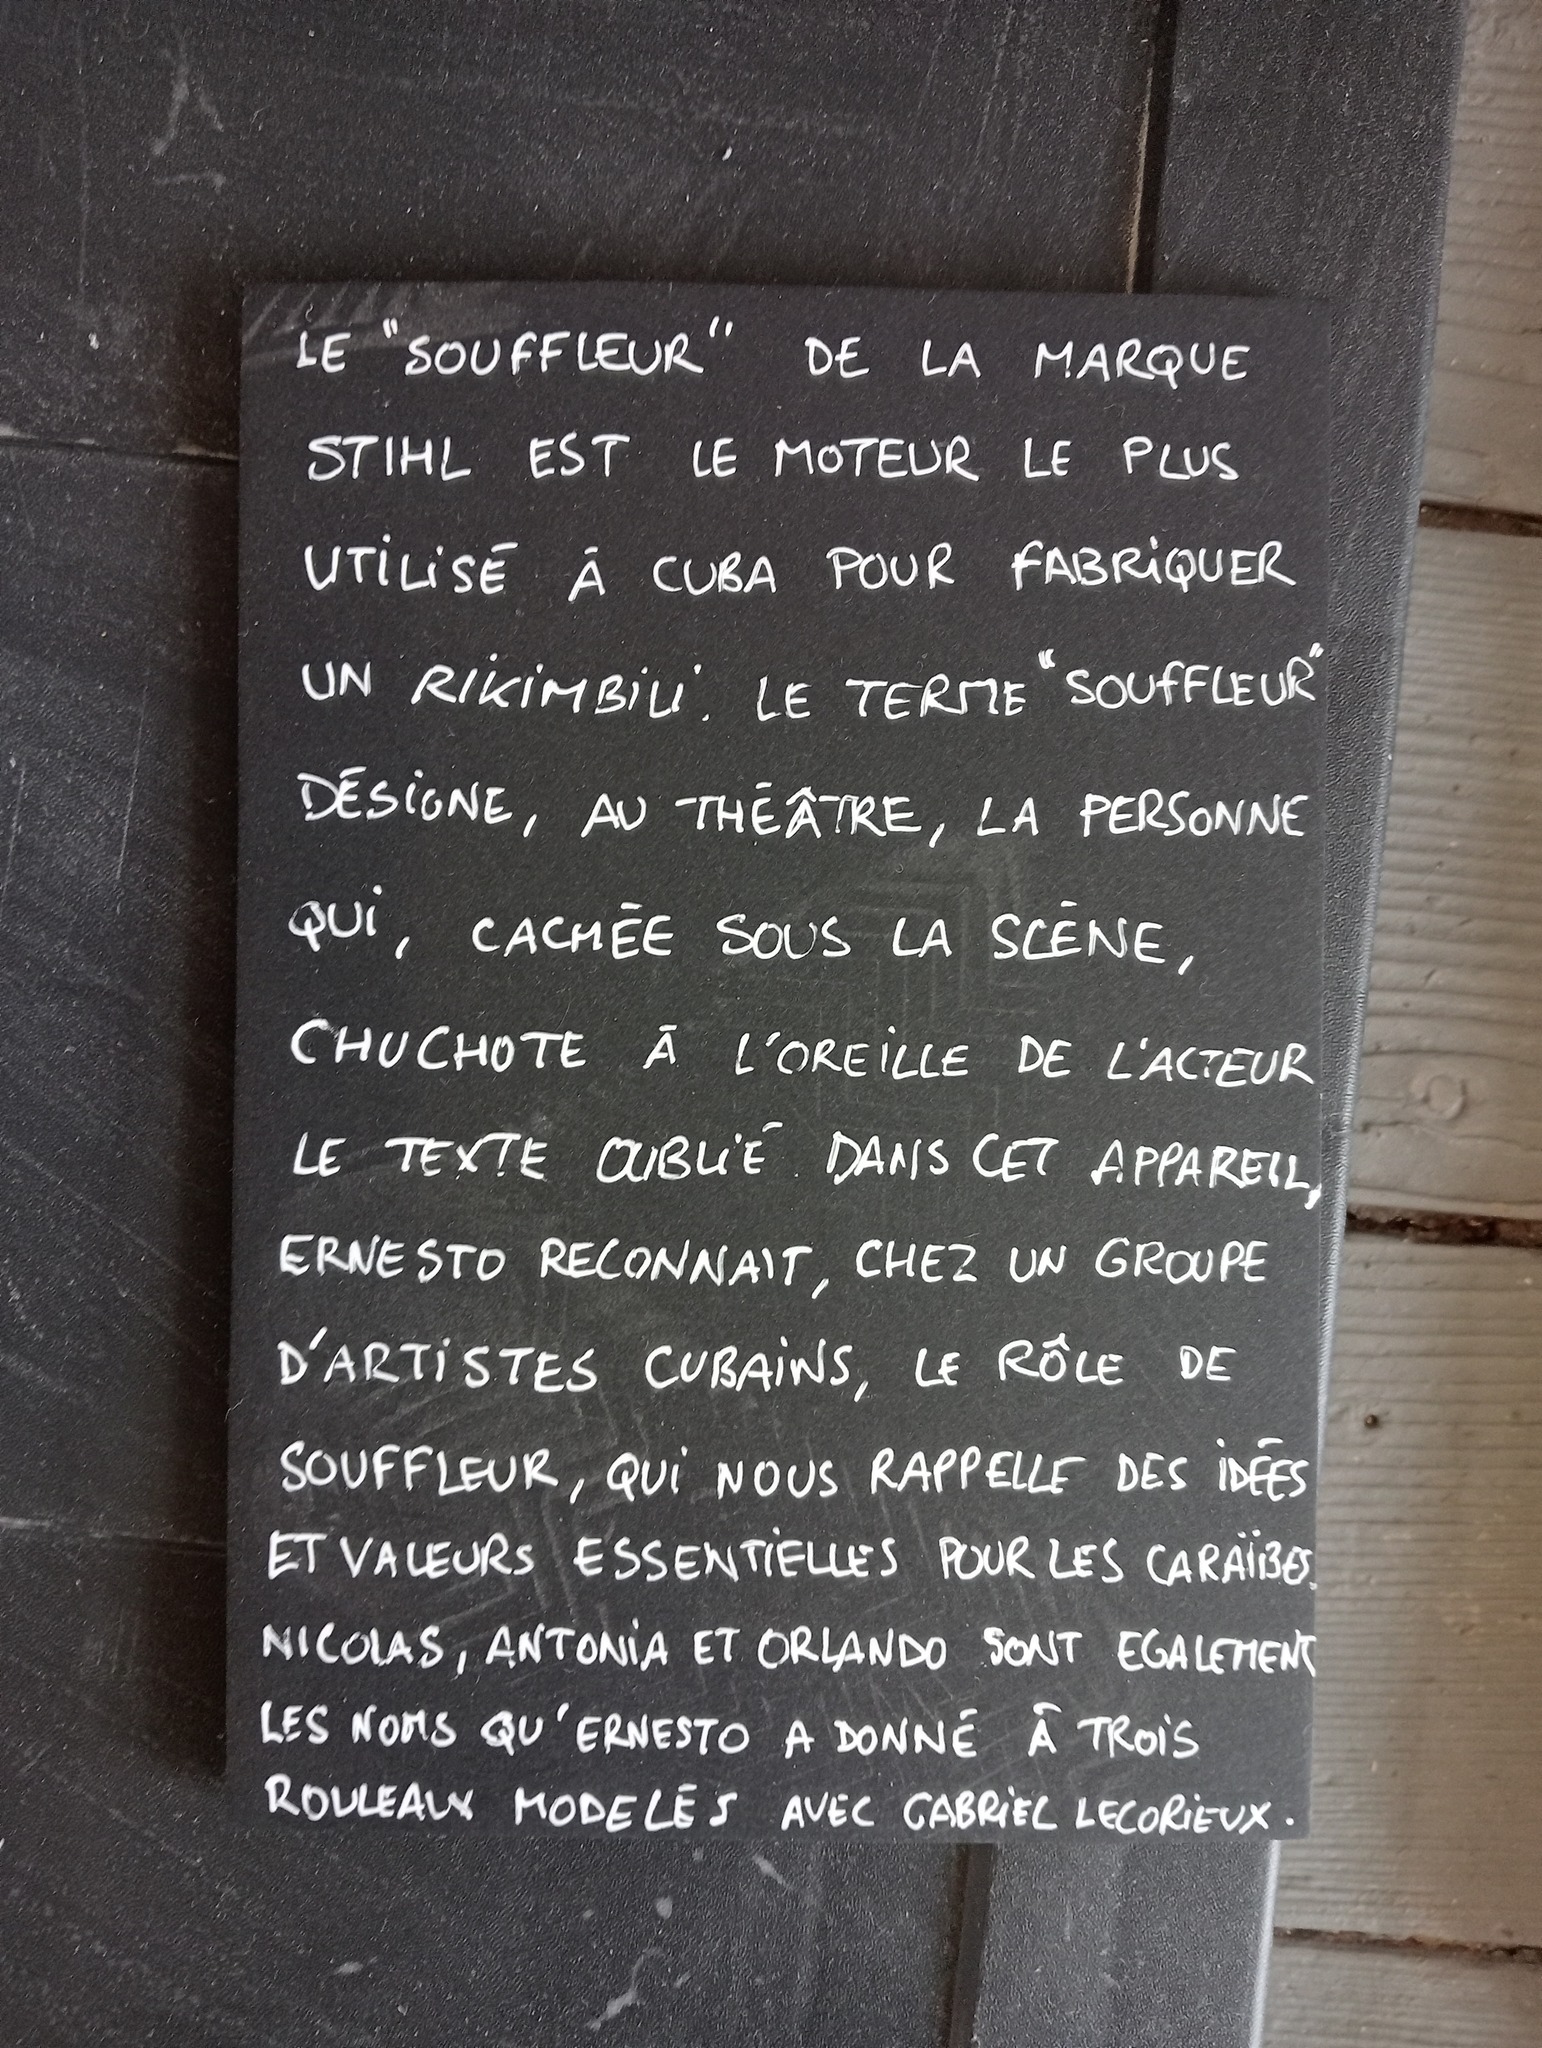 LE "SOUFFLEUR" DE LA MARQUE
STIHL EST LE MOTEUR LE PLUS
UTILISÉ À CUBA POUR FABRIQUER
UN RIKIMBILI. LE TERME "SOUFFLEUR"
DÉSIGNE, AU THÉÂTRE, LA PERSONNE
QUI, CACHÉE SOUS LA SCÈNE,
CHUCHOTE À L'OREILLE DE L'ACTEUR
LE TEXTE OUBLIÉ. DANS CET APPAREIL,
ERNESTO RECONNAIT, CHEZ UN GROUPE
D'ARTISTES CUBAINS, LE RÔLE DE
SOUFFLEUR, QUI NOUS RAPPELLE DES IDÉES
ET VALEURS ESSENTIELLES POUR LES CARAÏBES.
NICOLAS, ANTONIA ET ORLANDO SONT EGALEMENT
LES NOMS QU'ERNESTO A DONNÉ À TROIS
ROULEAUX MODELÉS AVEC GABRIEL LECORIEUX.